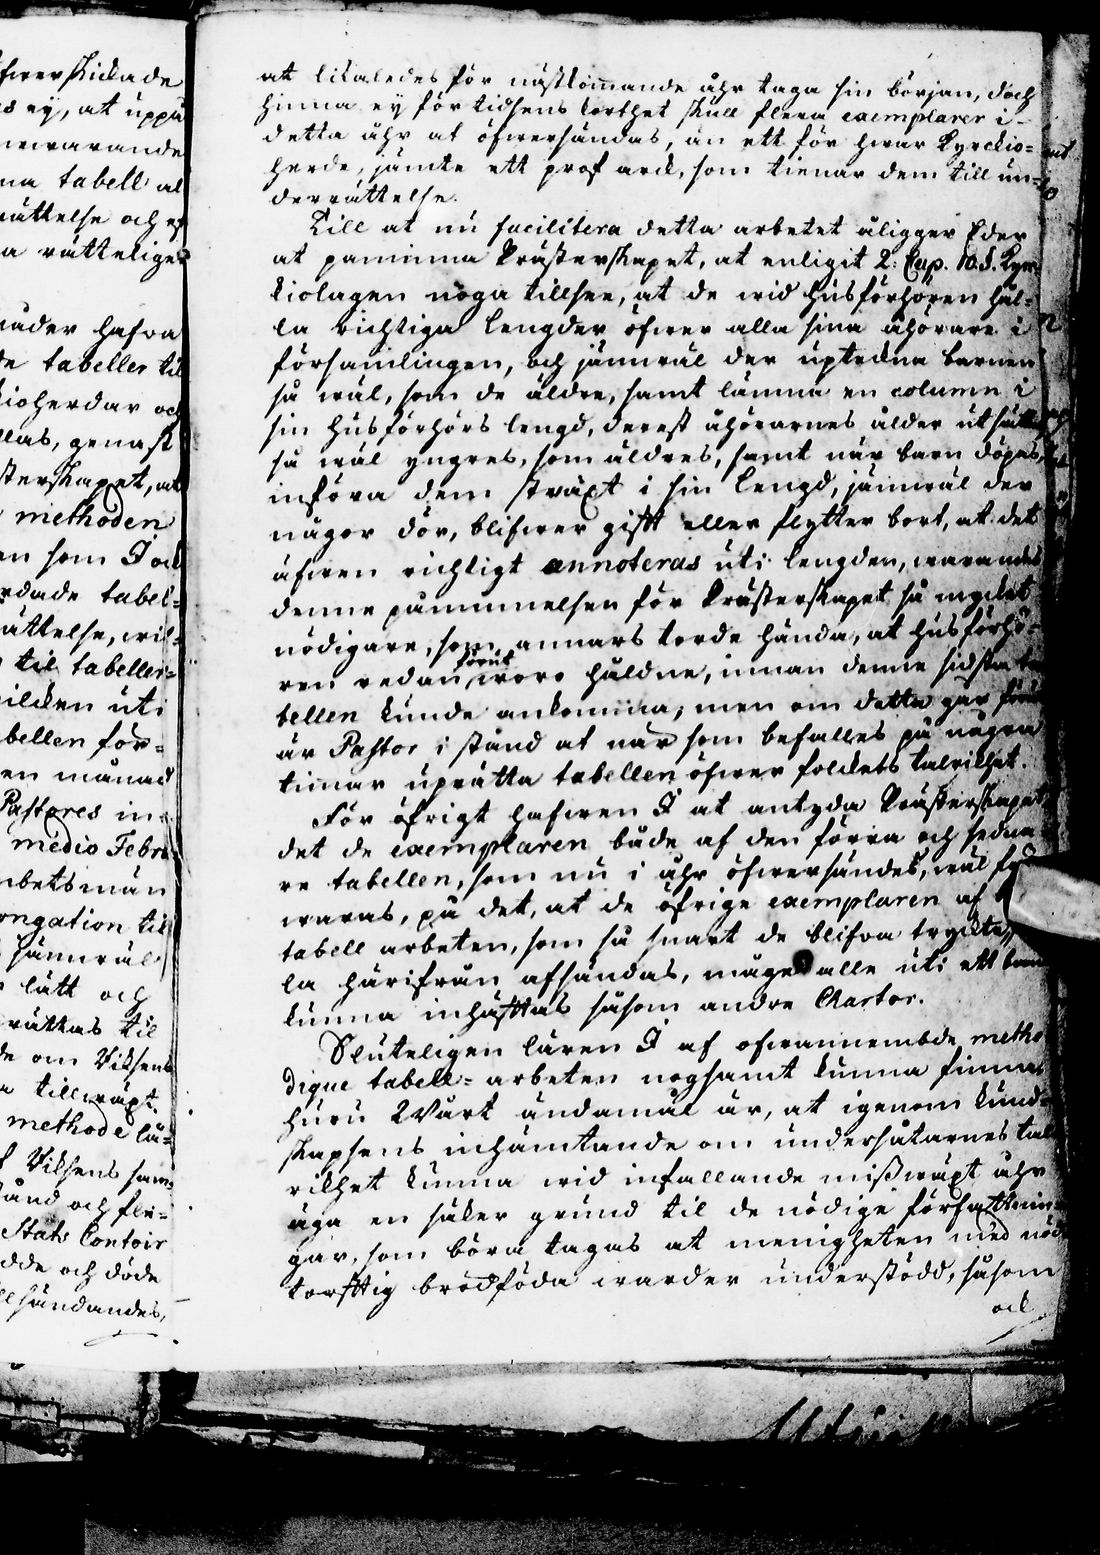 fwerskickade
s ey, at uppå
newarande
na tabell al
rättelse och ef
a rätteliges
under hafwa
de tabeller til
kioherdar och
llas, genast
sterskapet, at
methoden
en som I ock
rdade tabel=
ättelse, wil=
til tabeller=
ilcken uti
bellen för=
en månad
Pastores in=
medio Febru
mbetsmän
ongation til
jämwäl
lätt och
rättas til
de om Riksens
a tillwäxt.
methode lä=
f Riksens sam=
tånd och fle=
Stats Contoir
dde och döde
llsändandes,
at likaledes för nästkommande åhr taga sin början, doch
hinna ey för tidsens korthet skull flera exemplarer i
detta åhr at öfwersändas, än ett för hwar Kyrckio=
herde, jämte ett prof arck, som tienar dem till un=
derrättelse.
Till at nu facilitera detta arbetet åligger Eder
at påminna Prästerskapet, at enligit 2. Cap. 10. §. Kyr=
kiolagen noga tillsee, at de wid husförhören hål=
la richtiga lengder öfwer alla sina åhörare i
församlingen, och jämwäl der uptekna barnen
så wäl, som de äldre, samt lämna en column i
sin husförhörs lengd, derest åhörarnes ålder utsättes
så wäl yngres, som äldres, samt när barn döpes,
införa dem sträxt i sin lengd, jämwäl der
någor dör, blifwer gift eller flytter bort, at det
äfwen richtigt annoteras uti lengden, warandes
denne påminnelsen för Prästerskapet så mycket
nödigare, som annars torde hända, at husförhö=
ren redan förut woro håldne, innan denne sidsta ta
bellen kunde ankomma; men om detta går för
är Pastor i stånd at när som befalles på några
timar uprätta tabellen öfwer folckets talrikhet.
För öfrigt hafwen I at antyda Prästerskapet
det de exemplaren både af den förra och sedna
re tabellen, som nu i åhr öfwersändes, wäl för
waras, på det, at de öfrige exemplaren af
tabell arbeten, som så snart de blifwa tryckte,
la härifrån afsändas, måge alle uti ett band
kunna inhäftas såsom andre Chartor.
Sluteligen lären I af ofwannembde metho
dique tabell=arbeten nogsamt kunna finna,
huru Wårt ändamål är, at igenom kund=
skapsens inhämtande om undersåtarnes tal
rikhet kunna wid infallande mißwäxt åhr
äga en säker grund til de nödige författnin=
gar, som böra tagas at menigheten med nöd
torfftig brödföda warder understödd, såsom
ock